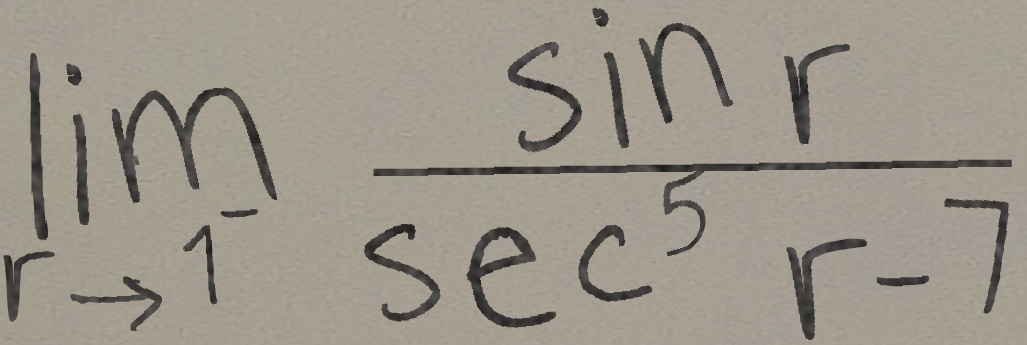 lim r→1⁻ sin r / sec⁵ r − 7